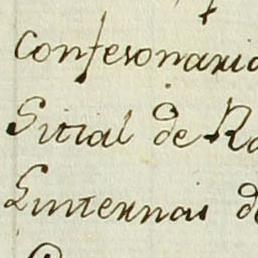 Confesonario
Sitial de Ra
Linternas de